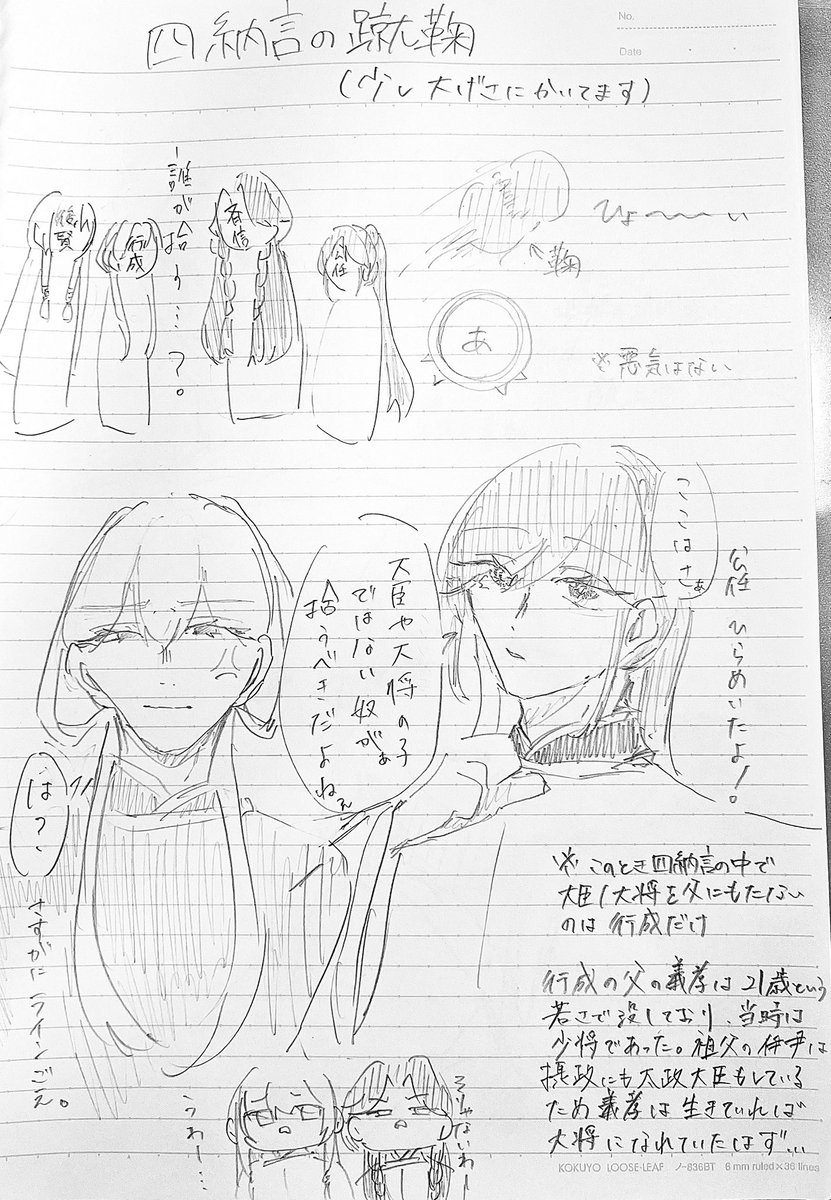 No.
Date
四納言の蹴鞠
(少し大げさにかいてます)
ひょ〜〜い
↖鞠
あ
※悪気はない
公任
斉信
誰が拾う…?。
行成
俊賢
公任 ひらめいたよ!。
ここはさぁ
大臣や大将の子
ではない奴がぁ
拾うべきだよねぇ
は?
さすがにラインごえ。
※このとき四納言の中で
大臣/大将を父にもたない
のは行成だけ
行成の父の義孝は21歳という
若さで没しており、当時は
少将であった。祖父の伊尹は
摂政にも太政大臣もしている
ため義孝は生きていれば
大将になれていたはず…
そりゃないわー
うわー…
KOKUYO LOOSE-LEAF ノ-836BT 6 mm ruled×36 lines